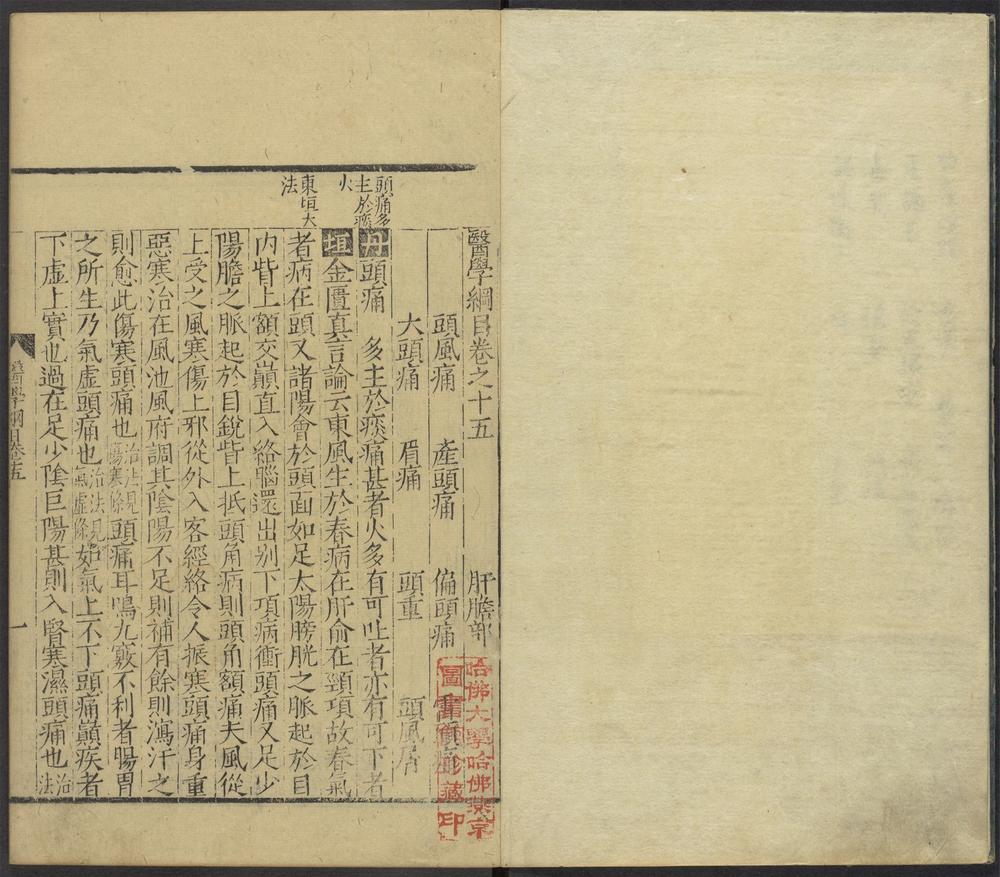 醫學綱目卷之十五　肝膽部
頭風痛　產頭痛　偏頭痛
大頭痛　眉痛　頭重　頭風屑
丹頭痛　多主於痰痛甚者火多有可吐者亦有可下者
垣金匱真言論云東風生於春病在肝俞在頸項故春氣
者病在頭又諸陽會於頭面如足太陽膀胱之脈起於目
内眥上額交巔直入絡腦還出别下項病衝頭痛又足少
陽膽之脈起於目銳眥上抵頭角病則頭角額痛夫風從
上受之風寒傷上邪從外入客經絡令人振寒頭痛身重
惡寒治在風池風府調其陰陽不足則補有餘則瀉汗之
則愈此傷寒頭痛也治法見傷寒條頭痛耳鳴九竅不利者腸胃
之所生乃氣虛頭痛也治法見氣虛條如氣上不下頭痛巔疾者
下虛上實也過在足少陰巨陽甚則入腎寒濕頭痛也治法
頭痛多
主於痰
火
東垣大
法
醫學綱目卷十五
一
哈佛大學哈佛燕京
圖書館珍藏印